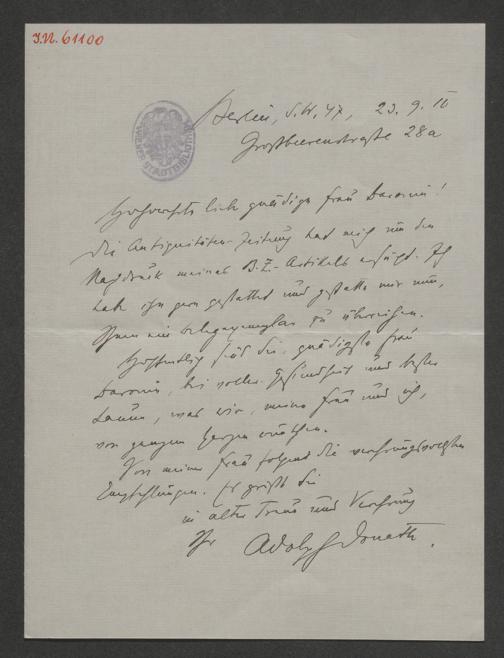 J.N. 61100
WIENER STADTBIBLIOTHEK
Berlin, S.W. 47, 23. 9. 10
Großbeerenstraße 28a
Hochverehrte liebe gnädige Frau Baronin!
Die Antiquitäten-Zeitung hat mich um den
Nachdruck meines B.Z.-Artikels ersucht. Ich
habe ihn gern gestattet und gestatte mir nun,
Ihnen ein Belegexemplar zu überreichen.
Hoffentlich sind Sie, gnädigste Frau
Baronin, bei voller Gesundheit und bester
Laune, was wir, meine Frau und ich,
von ganzem Herzen wünschen.
Von meiner Frau folgend die verehrungsvollsten
Empfehlungen. Es grüßt Sie
in alter Treue und Verehrung
Ihr Adolph Donath.